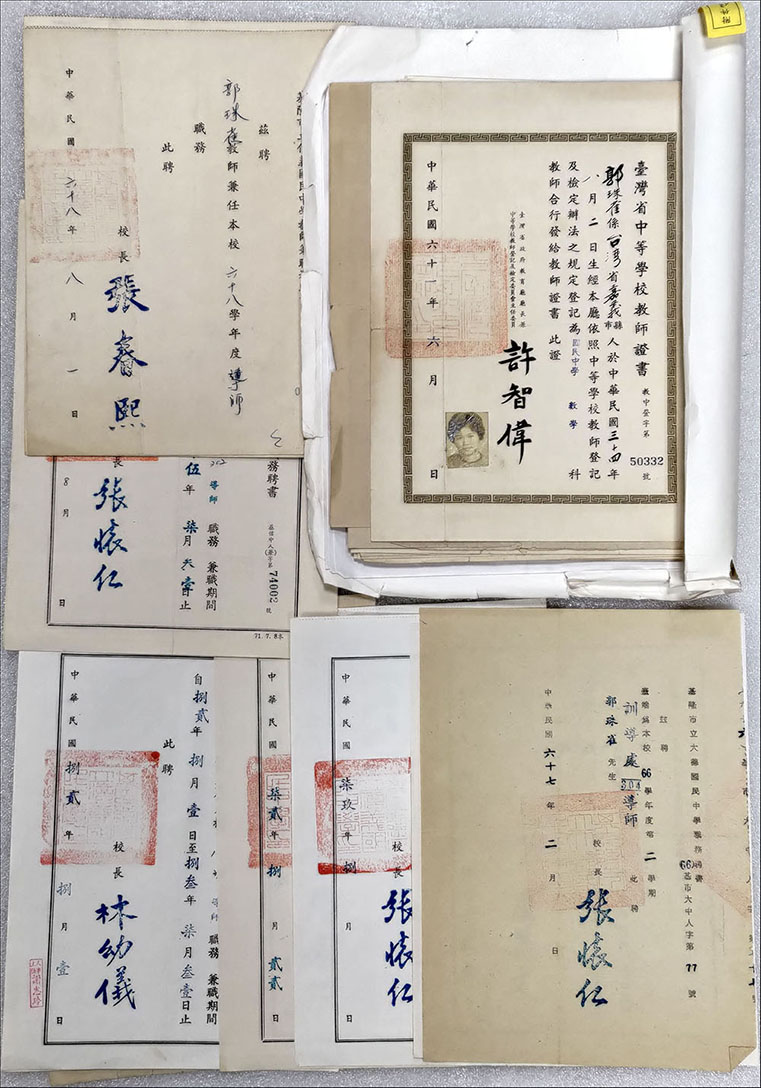 茲聘
郭珠雀教師兼任本校六十八學年度導師
職務
此聘
校長張春熙
中華民國六十八年八月一日
臺灣省中等學校教師證書
教中登字第
50332
號
郭珠雀係台灣省嘉義縣市人於中華民國三十四年
八月二日生經本廳依照中等學校教師登記
及檢定辦法之規定登記為國民中學數學科
教師合行發給教師證書此證
臺灣省政府教育廳廳長兼
中等學校教師登記及檢定委員會主任委員
許智偉
中華民國六十一年六月日
務聘書
74002
號
導師職務兼職期間
伍年柒月叁壹日止
長張懷仁
8月日
71.7.8本
職務兼職期間
自捌貳年捌月壹日至捌叁年柒月叁壹日止
此聘
校長林幼儀
中華民國捌貳年捌月壹日
中華民國柒貳年捌月貳貳日
校長張懷仁
中華民國柒玖年捌月日
基隆市立大華國民中學職務聘書
66基市大中人字第77號
茲聘
臺端為本校66學年度第二學期
訓導處304導師
此聘
郭珠雀先生
校長張懷仁
中華民國六十七年二月日